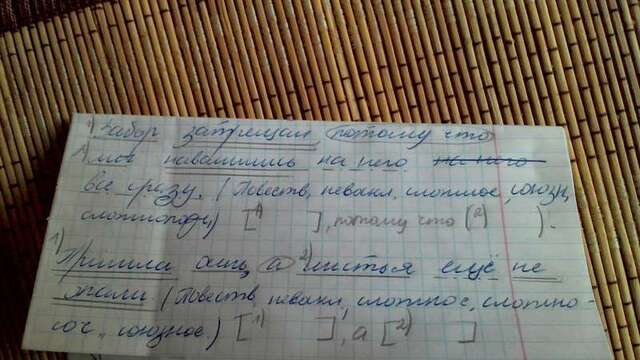 1) Забор затрещал потому что
2) мы навалились на него на него
все сразу. (Повеств, невоскл, сложное, союзн,
сложноподч) [1) ], потому что (2) ).
1) Пришла осень, а 2) листья ещё не
опали (Повеств, невоскл, сложное, сложно-
соч., союзное.) [1) ], а [2) ]